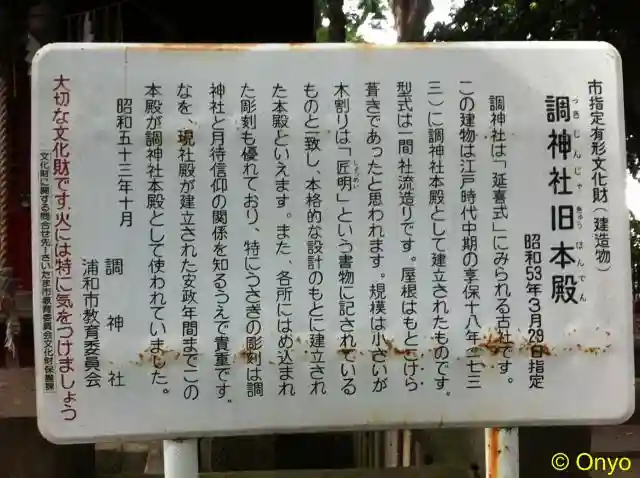 市指定有形文化財(建造物)
調神社旧本殿
つきじんじゃきゅうほんでん
昭和53年3月29日指定
調神社は「延喜式」にみられる古社です。
この建物は江戸時代中期の享保十八年(一七三
三)に調神社本殿として建立されたものです。
型式は一間社流造りです。屋根はもとこけら
葺きであったと思われます。規模は小さいが
木割りは「匠明」という書物に記されている
しょうめい
ものと一致し、本格的な設計のもとに建立され
た本殿といえます。また、各所にはめ込まれ
た彫刻も優れており、特にうさぎの彫刻は調
神社と月待信仰の関係を知るうえで貴重です。
なを、現社殿が建立された安政年間までこの
本殿が調神社本殿として使われていました。
昭和五十三年十月
調神社
浦和市教育委員会
大切な文化財です。火には特に気をつけましょう
(文化財に関する問合せ先―さいたま市教育委員会文化財保護課)
© Onyo